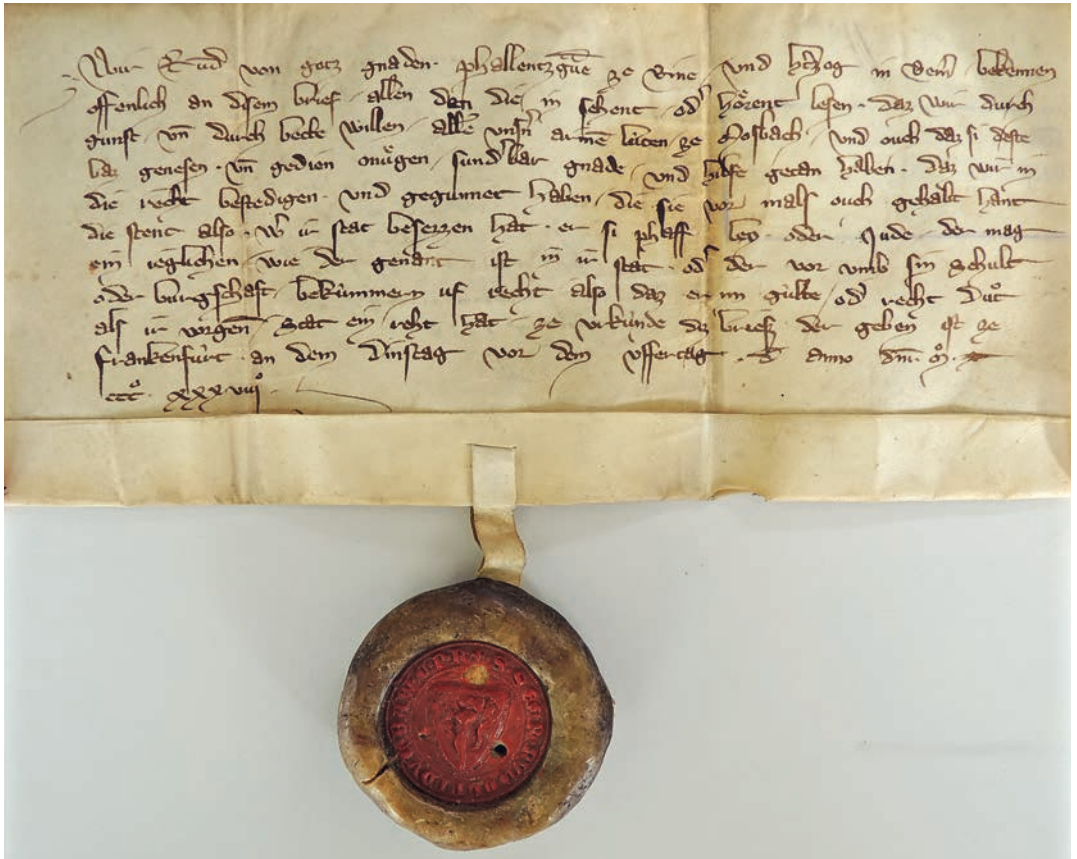 Wir Rud' von gotz gnaden · phallentzgͣue ze Rine · vnd h'tzog in Beiern · bekennen
offenlich an disem brief · allen den die in sehent · od' hoͤrent lesen · daz wir durch
gunst · vn̄ durch bete willen · all' vnsr' armē luͤten ze Mosbach · vnd ouch daz si deste
baz genesen · vn̄ gedien muͤgen · sund'bar gnade · vnd hilfe getan haben · daz wir in
die recht bestedigen · vnd gegunnet haben · die sie vor mals ouch gehabt hant
die stent also · w' ir stat besezzen hat · er si phaff ley · oder Jude · der mag
ein ieglichen · wie der genant ist in ir stat · od' der vor vmb sin schult
oder burgschaft · bekuͤmmern uf recht also daz er im guͤlte · od' recht duͦt
als ir vorgen̄ stat ein reht hat · ze vrkuͤnde dez briefz der geben ist ze
Frankenfuͤrt · an dem Dinstag vor dem vffertag · anno dnī · Mͦ ·
cccͦ · xxxviijͦ ·